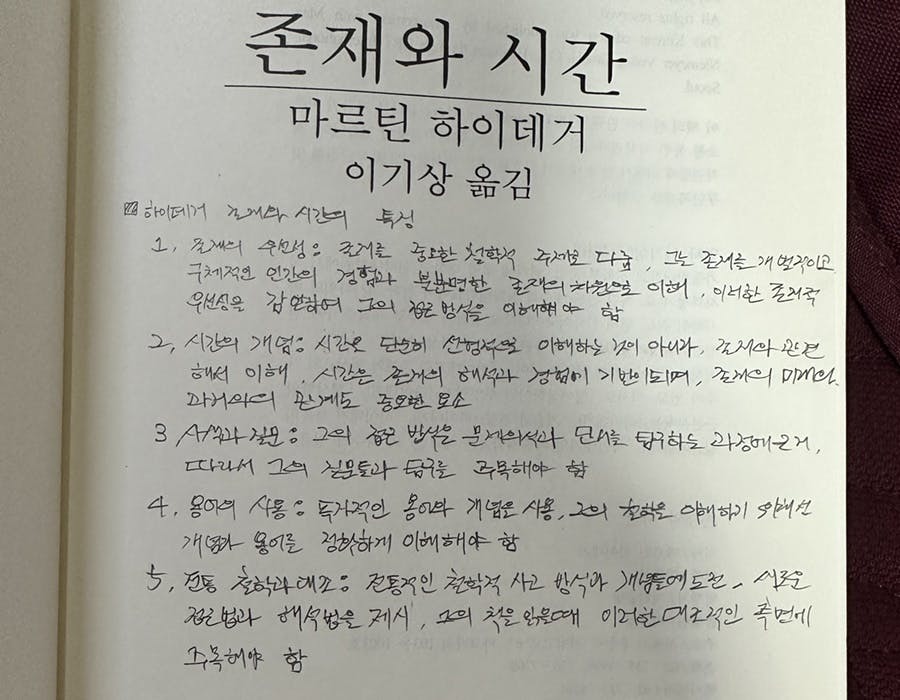 존재와 시간
마르틴 하이데거
이기상 옮김
하이데거 존재와 시간의 특징
1. 존재의 우선성 : 존재를 중요한 철학적 주제로 다룸, 그는 존재를 개별적이고
구체적인 인간의 경험과 불분명한 존재의 차원으로 이해, 이러한 존재적
우선성을 감안하여 그의 접근 방식을 이해해야 함
2. 시간의 개념 : 시간은 단순히 선형적으로 이해하는 것이 아니라, 존재와 관련
해서 이해, 시간은 존재의 해석과 경험에 기반이되며, 존재의 미래와
과거와의 관계도 중요한 요소
3 사색과 질문 : 그의 접근 방식은 문제의식과 단서를 탐구하는 과정에 근거,
따라서 그의 질문들과 탐구를 주목해야 함
4. 용어의 사용 : 독자적인 용어와 개념을 사용, 그의 철학을 이해하기 위해선
개념과 용어를 정확하게 이해해야 함
5. 전통 철학과 대조 : 전통적인 철학적 사고 방식과 개념들에 도전, 새로운
접근법과 해석법을 제시, 그의 책을 읽을때 이러한 대조적인 측면에
주목해야 함